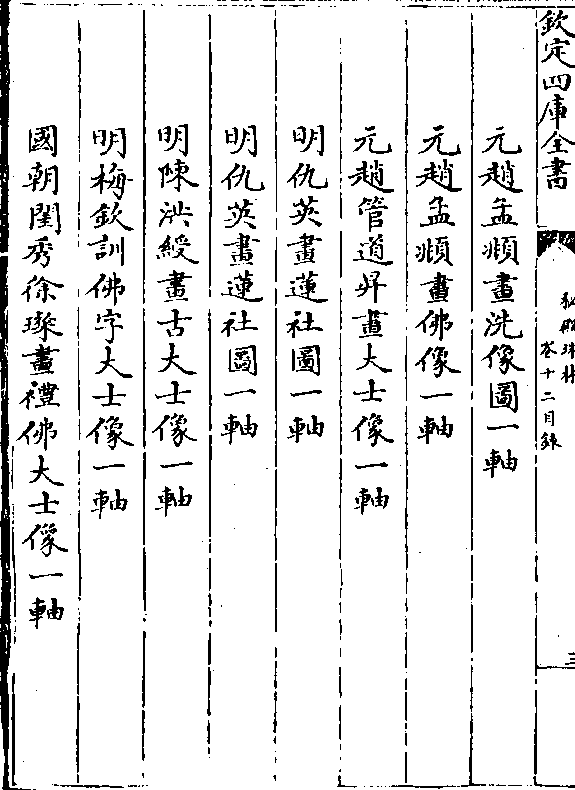 欽定四庫全書
秘殿珠林
卷十二目錄
三
元趙孟頫畫洗像圖一軸
元趙孟頫畫佛像一軸
元趙管道昇畫大士像一軸
明仇英畫蓮社圖一軸
明仇英畫蓮社圖一軸
明陳洪綬畫古大士像一軸
明梅欽訓佛字大士像一軸
國朝閨秀徐璨畫禮佛大士像一軸